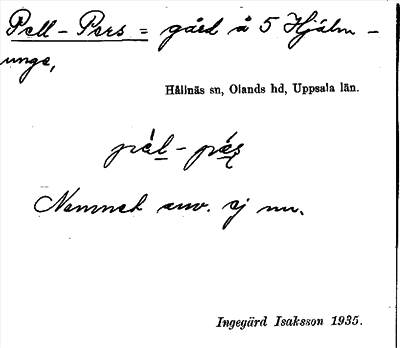 Pell-Pers = gård å 5 Hjälm-
unge,
Hållnäs sn, Olands hd, Uppsala län.
pè̀l-pæ̣s
Namnet anv. ej nu.
Ingegärd Isaksson 1935.